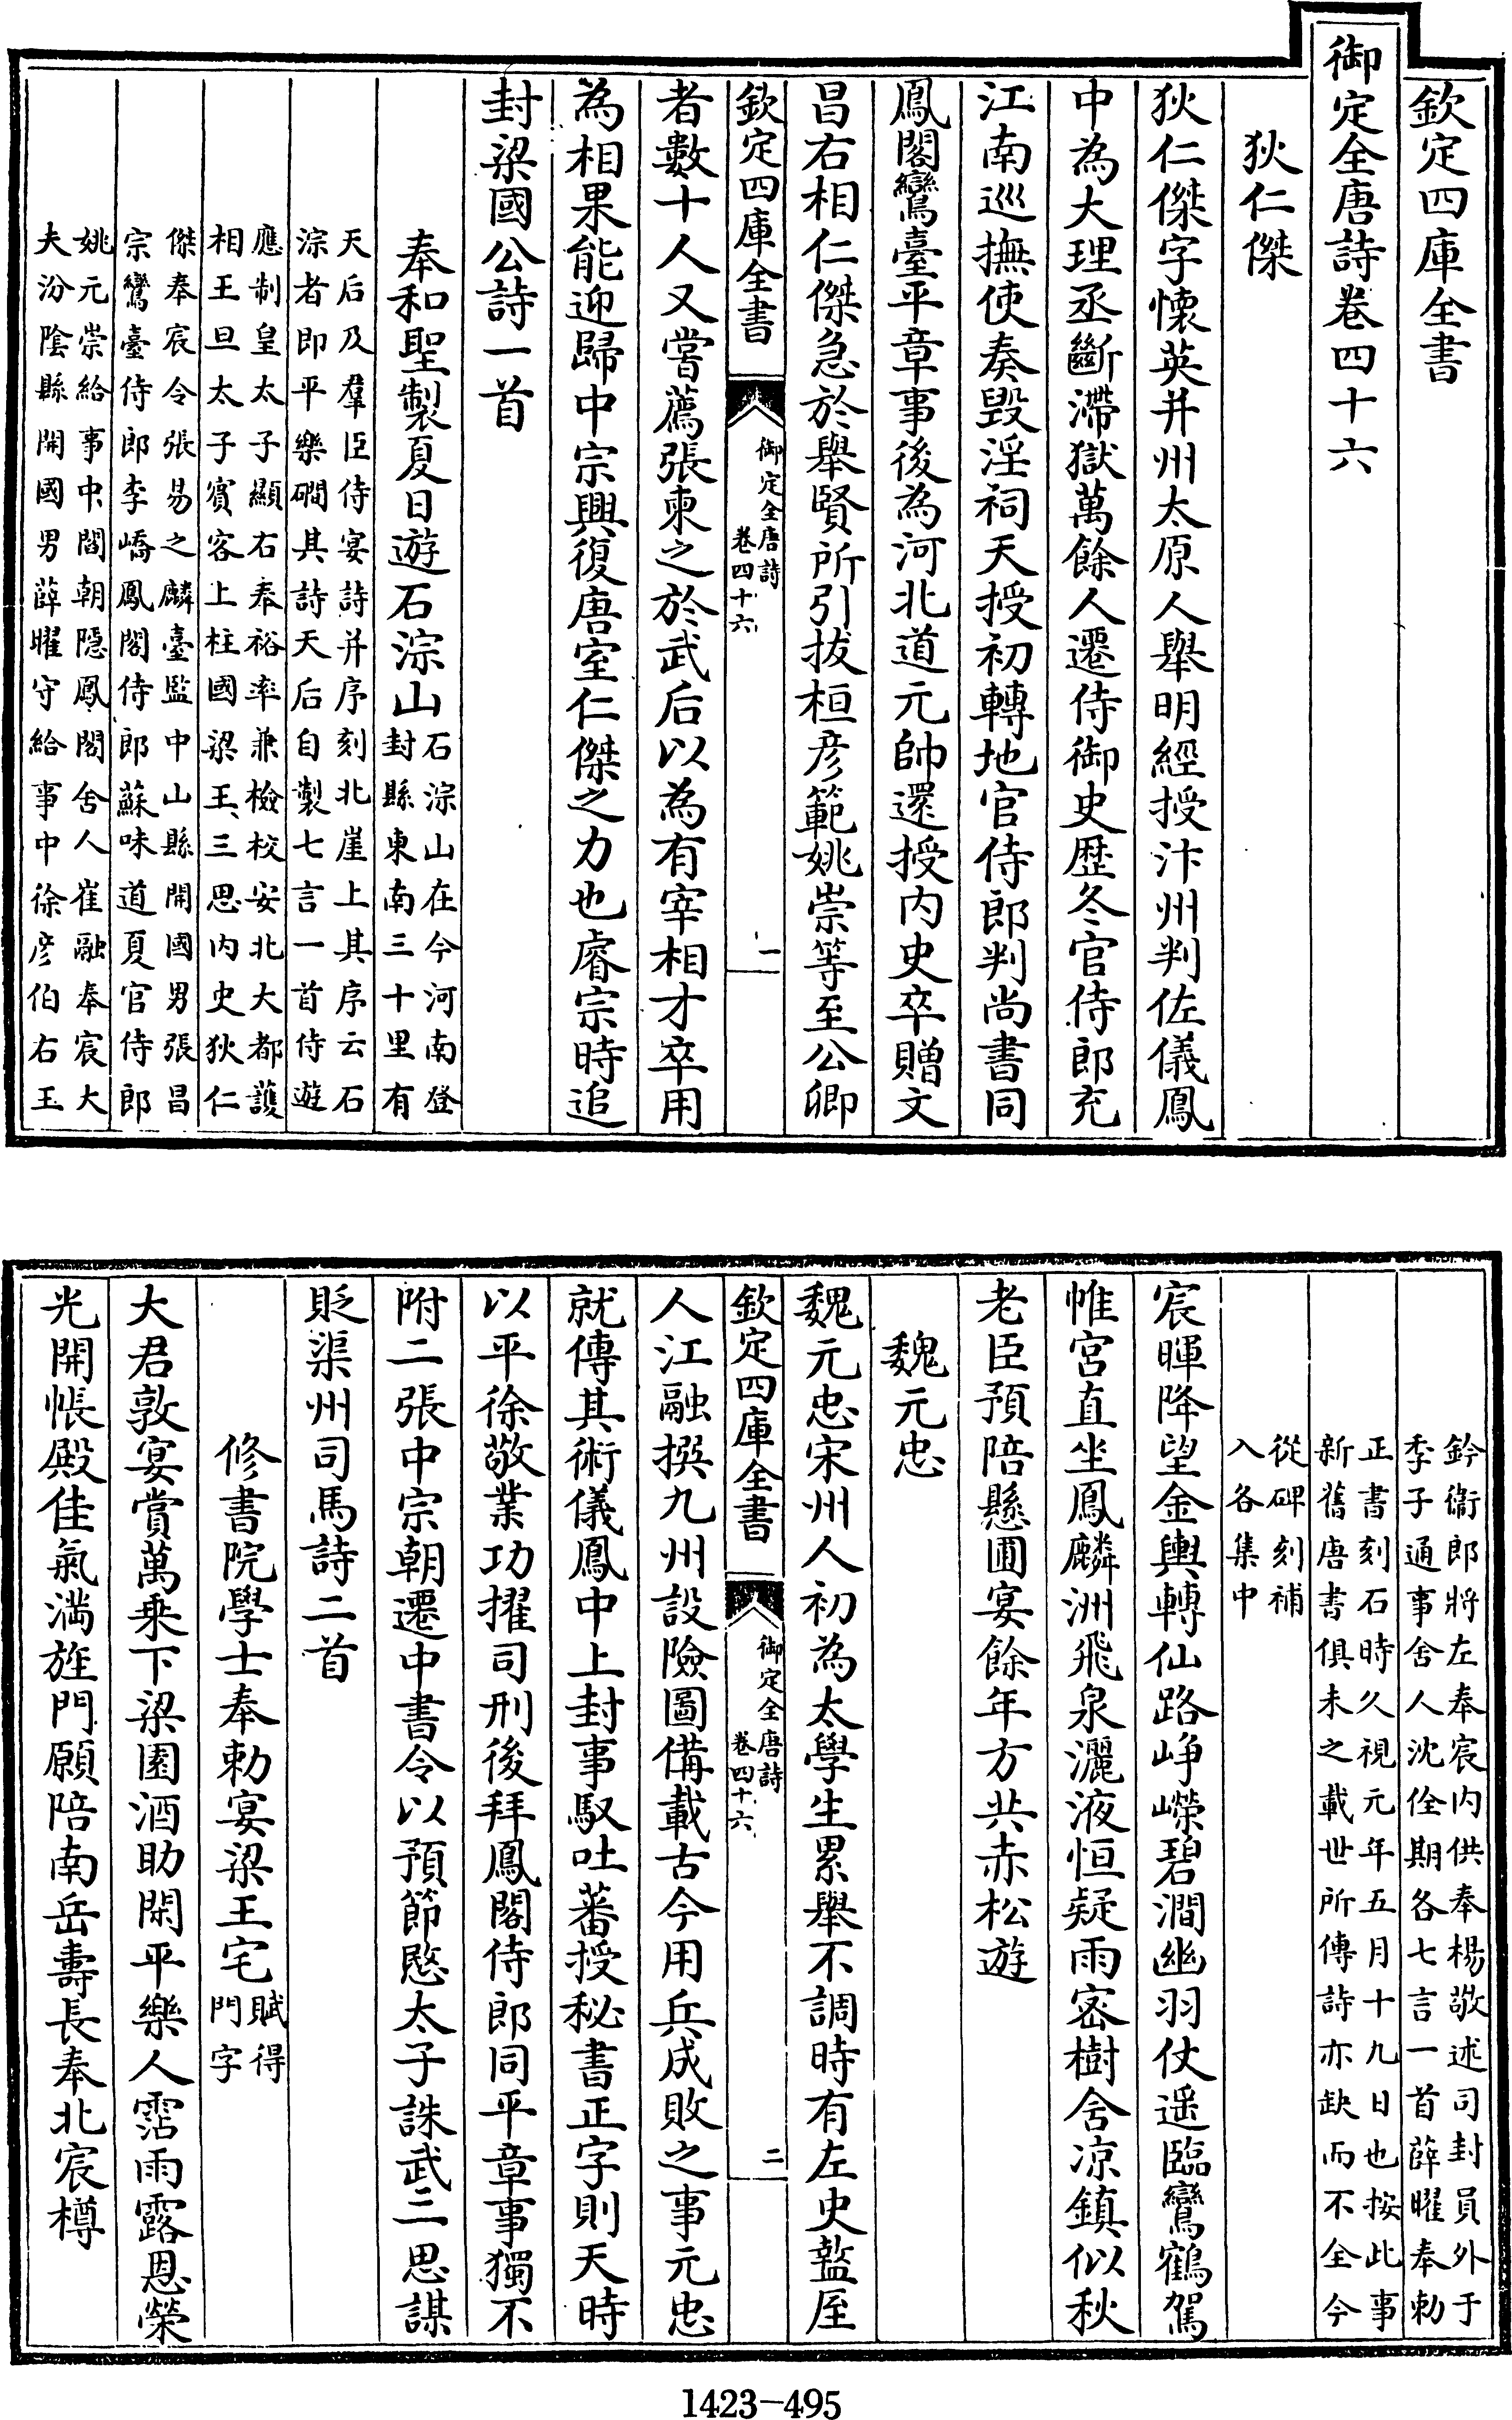 欽定四庫全書
御定全唐詩卷四十六
狄仁傑
狄仁傑字懷英并州太原人舉明經授汴州判佐儀鳳
中為大理丞斷滯獄萬餘人遷侍御史歴冬官侍郎充
江南巡撫使奏毁淫祠天授初轉地官侍郎判尚書同
鳳閣鸞臺平章事後為河北道元帥還授内史卒贈文
昌右相仁傑急於舉賢所引拔桓彦範姚崇等至公卿
欽定四庫全書
御定全唐詩
卷四十六
一
者數十人又嘗薦張柬之於武后以為有宰相才卒用
為相果能迎歸中宗興復唐室仁傑之力也睿宗時追
封梁國公詩一首
奉和聖製夏日遊石淙山
石淙山在今河南登
封縣東南三十里有
天后及羣臣侍宴詩并序刻北崖上其序云石
淙者即平樂磵其詩天后自製七言一首侍遊
應制皇太子顯右奉裕率兼檢校安北大都護
相王旦太子賓客上柱國梁王三思内史狄仁
傑奉宸令張易之麟臺監中山縣開國男張昌
宗鸞臺侍郎李嶠鳳閣侍郎蘇味道夏官侍郎
姚元崇給事中閻朝隱鳳閣舍人崔融奉宸大
夫汾陰縣開國男薛曜守給事中徐彦伯右玉
鈐衞郎將左奉宸内供奉楊敬述司封員外于
季子通事舍人沈佺期各七言一首薛曜奉勅
正書刻石時久視元年五月十九日也按此事
新舊唐書俱未之載世所傳詩亦缺而不全今
從碑刻補
入各集中
宸暉降望金輿轉仙路崢嶸碧澗幽羽仗遥臨鸞鶴駕
帷宫直坐鳳麟洲飛泉灑液恒疑雨密樹含凉鎮似秋
老臣預陪懸圃宴餘年方共赤松遊
魏元忠
魏元忠宋州人初為太學生累舉不調時有左史盩厔
欽定四庫全書
御定全唐詩
卷四十六
二
人江融撰九州設險圖備載古今用兵成敗之事元忠
就傳其術儀鳳中上封事馭吐蕃授秘書正字則天時
以平徐敬業功擢司刑後拜鳳閣侍郎同平章事獨不
附二張中宗朝遷中書令以預節愍太子誅武三思謀
貶渠州司馬詩二首
修書院學士奉勅宴梁王宅
賦得
門字
大君敦宴賞萬乗下梁園酒助閑平樂人霑雨露恩榮
光開帳殿佳氣滿旌門願陪南岳壽長奉北宸樽
1423-495